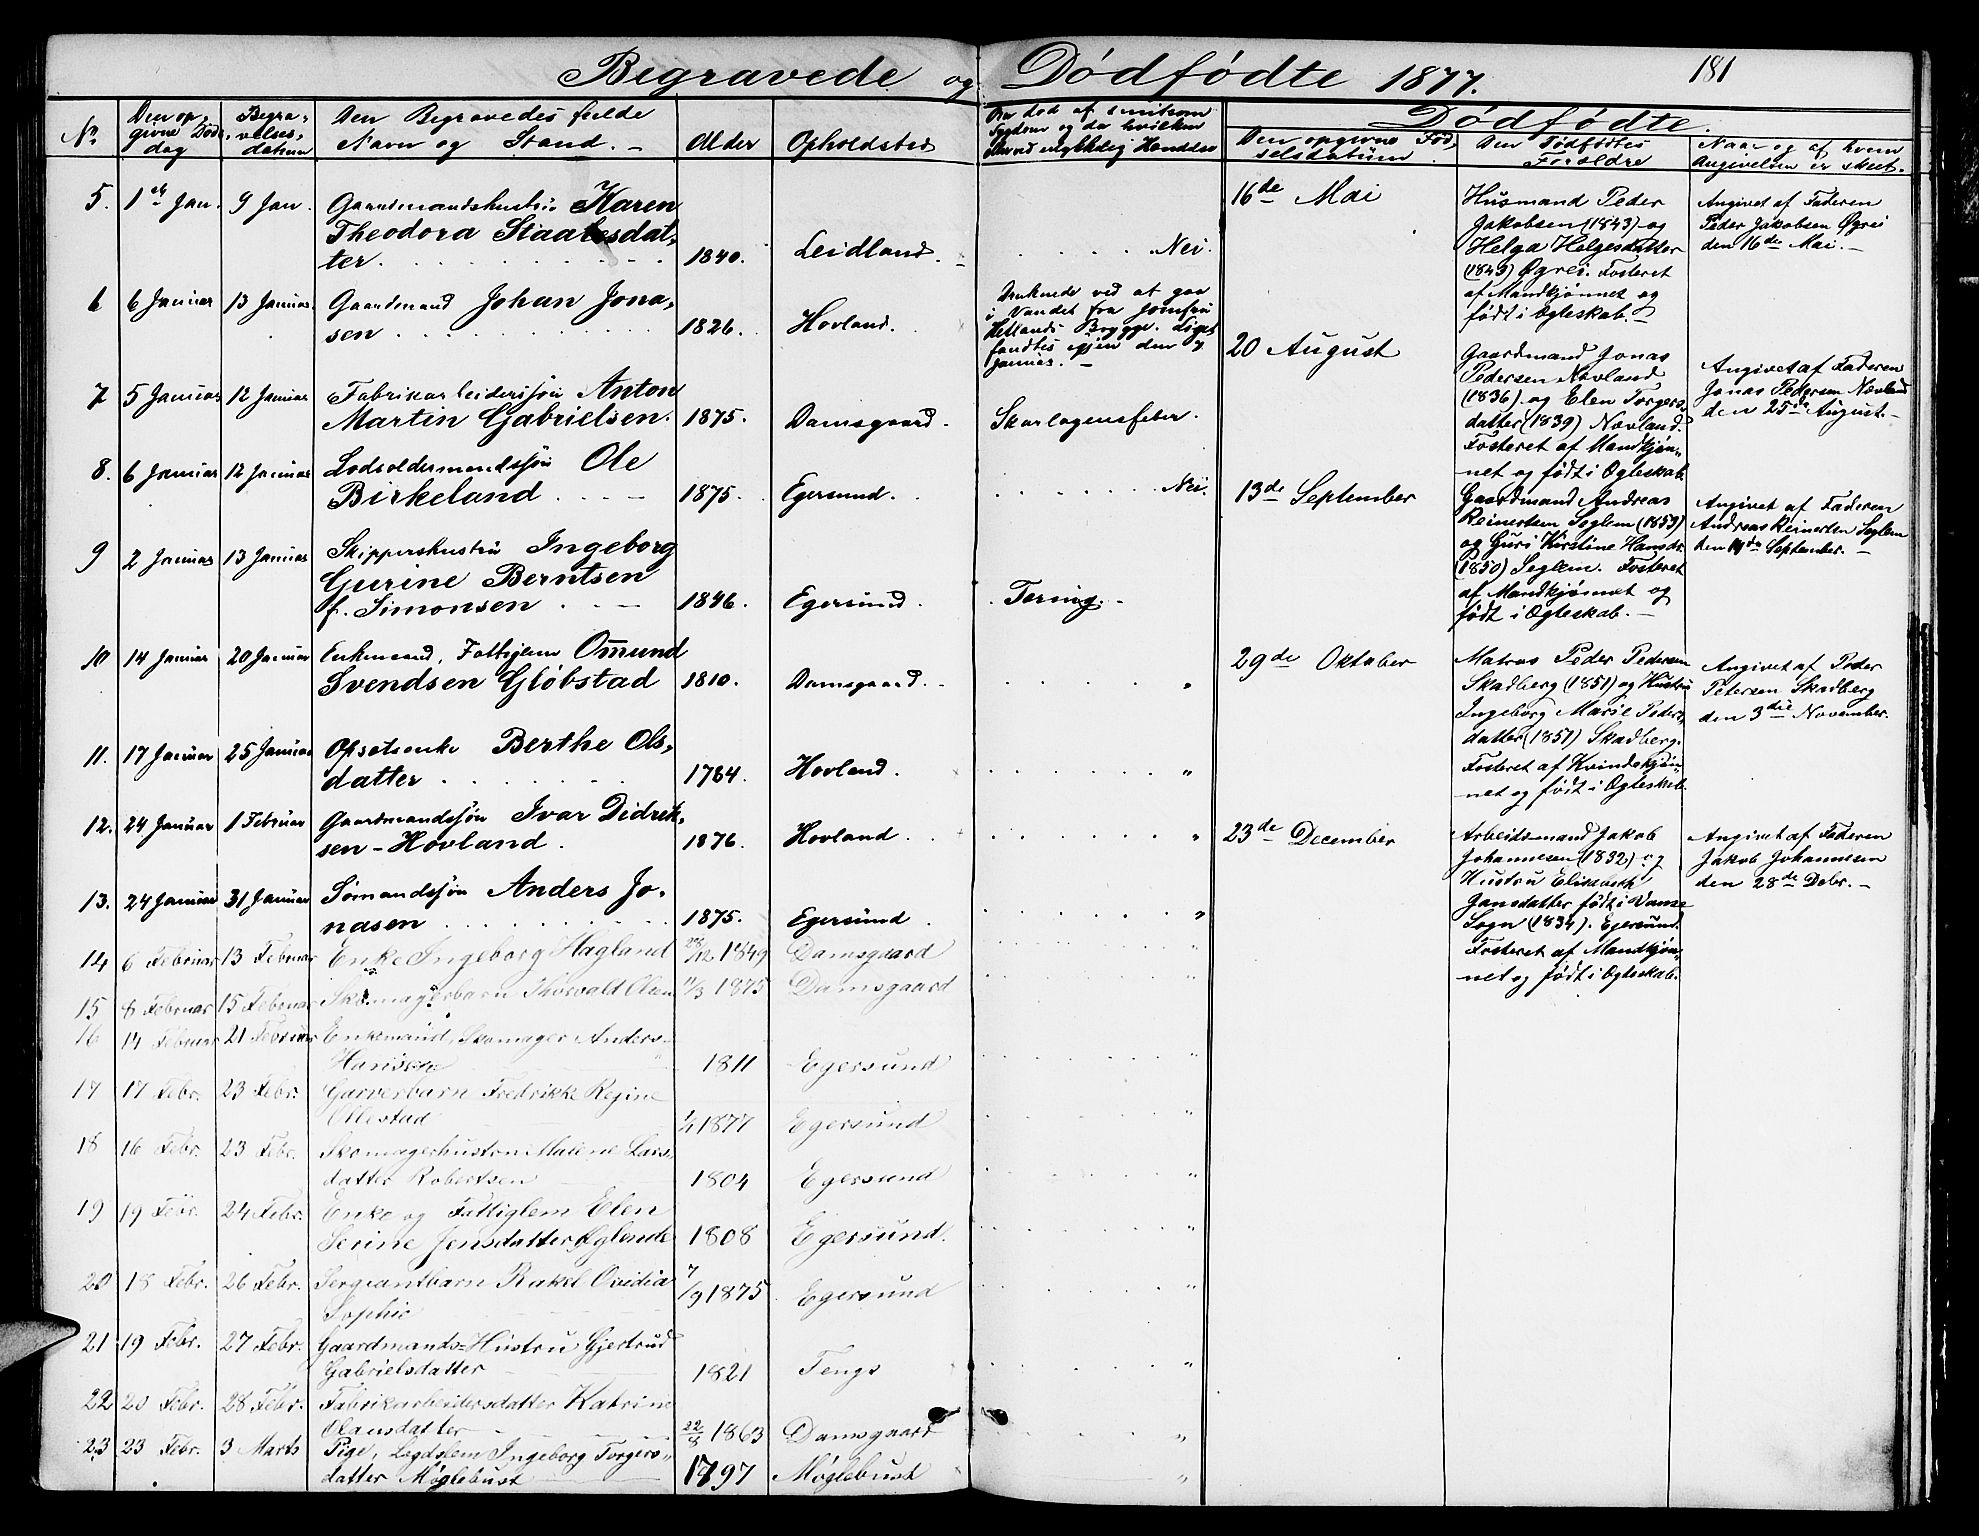 Begravede og Dødfødte 1877. 181
No. Den opgivne Døds-dag Begra-velses-datum Den Begravedes fulde Navn og Stand. Alder Opholdsted
Om død af smitsom Sygdom og da hvilken eller ved ulykkelig Hændelse
Dødfødte.
Den opgivne Fødselsdatum Den Dødfødtes Forældre Naar og af hvem Angivelsen er skeet.
5. 1ste Jan. 9 Jan. Gaardmandshustru Karen
Theodora Staalesdat-
ter. 1840. Leidland. Nei.
6 6 Januar 13 Januar. Gaardmand Johan Jona-
sen 1826. Hovland. Druknede ved at gaa
i Vandet fra Jomfru
Hetlands Brygge. Liget
fandtes igjen den 7
Januar. -
7 5 Januar 12 Januar Fabrikarbeiderssøn Anton
Martin Gabrielsen. 1875. Damsgaard. Skarlagensfeber.
8. 6 Januar 12 Januar Lodsoldermandssøn Ole
Birkeland 1875. Egersund. Nei.
9 2 Januar 13 Januar Skippershustru Ingeborg
Gurine Berntsen
f. Simonsen 1846. Egersund. Tering. -
10 14 Januar 20 Januar Enkemand, Fattiglem Omund
Svendsen Gløbstad 1810. Damsgaard. "
11. 17 Januar 25 Januar Opsatsenke Berthe Ols-
datter 1784. Hovland. "
12. 24 Januar 1 Februar Gaardmandssøn Ivar Didrik-
sen - Hovland. 1876. Hovland "
13. 24 Januar 31 Januar Sømandssøn Anders Jo-
nasen 1875. Egersund. "
14 6 Februar 13 Februar Enke Ingeborg Hagland 28/12 1849 Damsgaard "
15 8 Februar 15 Februar Skomagerbarn Thorvald Olsen 11/3 1875 Damsgaard "
16 14 Februar 21 Februar Enkemand, Skomager Anders
Hansen 1811 Egersund "
17 17 Febr. 23 Febr. Garverbarn Fredrikke Regine
Ollestad 1/1 1877 Egersund "
18 16 Febr. 23 Febr. Skomagerhustru Malene Lars-
datter Robertsen 1804 Egersund "
19 19 Febr. 24 Febr. Enke og Fattiglem Elen
Serine Jensdatter Eglende 1808 Egersund. "
20 18 Febr. 26 Febr. Sergiantbarn Rakel Ovidia
Sophie 7/9 1875 Egersund "
21 19 Febr. 27 Febr. Gaardmands-Hustru Gjertrud
Gabrielsdatter 1821 Tengs "
22 20 Febr. 28 Febr. Fabrikarbeidersdatter Katrine
Olausdatter 22/8 1863 Damsgaard "
23 23 Febr. 3 Marts Pige, Legdslem Ingeborg Torgers-
datter Møglebust 1797 Møglebust "
16de Mai Husmand Peder
Jakobsen (1843) og
Helga Helgesdatter
(1843) Øgrei. Fosteret
af Mandkjønnet og
født i Ægteskab.
Angivet af Faderen
Peder Jakobsen Øgrei
den 16de Mai. -
20 August Gaardmand Jonas
Pedersen Nevland
(1836) og Elen Torgers-
datter (1839) Nevland.
Fosteret af Mandkjøn-
net og født i Ægteskab.
Angivet af Faderen
Jonas Pedersen Nævland
den 25de August. -
13de September Gaardmand Andreas
Reinertsen Seglem (1853)
og Guri Kirstine Hansdr.
(1850) Seglem. Fosteret
af Mandkjønnet og
født i Ægteskab. -
Angivet af Faderen
Andreas Reinertsen Seglem
den 19de September. -
29de Oktober Matros Peder Pedersen
Skadberg (1851) og Hustru
Ingeborg Marie Peders-
datter (1851) Skadberg.
Fosteret af Kvindekjøn-
net og født i Ægteskab.
Angivet af Peder
Petersen Skadberg
den 3die November.
23de December Arbeidsmand Jakob
Johannesen (1832) og
Hustru Elisabeth
Jansdatter født i Vanse
Sogn (1834). Egersund.
Fosteret af Mandkjøn-
net og født i Ægteskab.
Angivet af Faderen
Jakob Johannesen
den 28de Debr. -